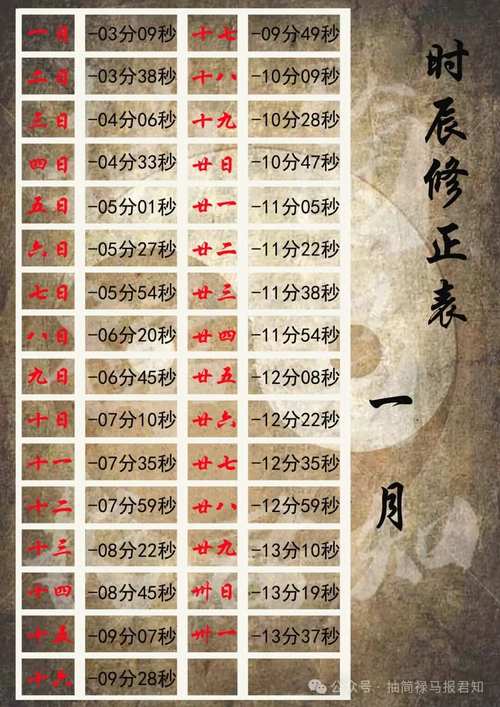 时辰修正表 一月
一日 -03分09秒 十七 -09分49秒
二日 -03分38秒 十八 -10分09秒
三日 -04分06秒 十九 -10分28秒
四日 -04分33秒 廿日 -10分47秒
五日 -05分01秒 廿一 -11分05秒
六日 -05分27秒 廿二 -11分22秒
七日 -05分54秒 廿三 -11分38秒
八日 -06分20秒 廿四 -11分54秒
九日 -06分45秒 廿五 -12分08秒
十日 -07分10秒 廿六 -12分22秒
十一 -07分35秒 廿七 -12分35秒
十二 -07分59秒 廿八 -12分59秒
十三 -08分22秒 廿九 -13分10秒
十四 -08分45秒 卅日 -13分19秒
十五 -09分07秒 卅一 -13分37秒
十六 -09分28秒
知
公众号 · 抽简禄马报君知